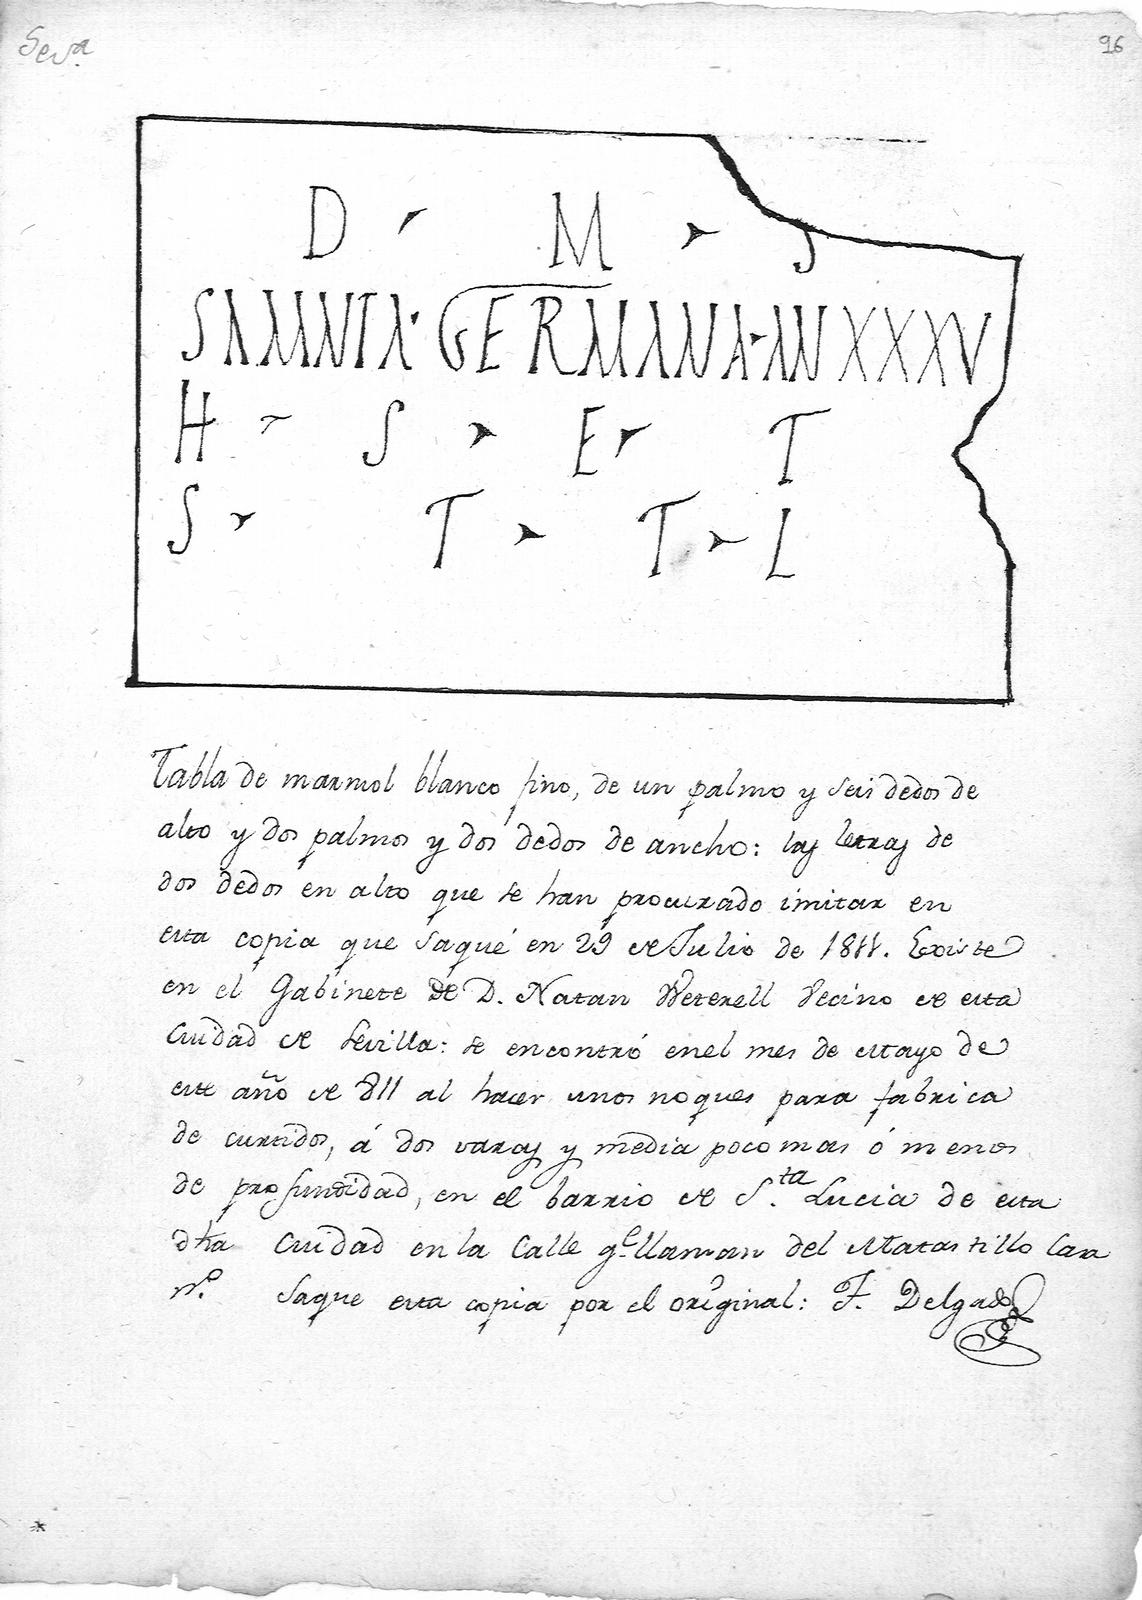 Sev.a
96
D M S
SAMNTA GERMANA AN XXXV
H S E T
S T T L
Tabla de marmol blanco fino, de un palmo y seis dedos de
alto y dos palmos y dos dedos de ancho: las letras de
dos dedos en alto que se han procurado imitar en
esta copia que saqué en 29 de Julio de 1811. Existe
en el Gabinete de D. Natan Weterell Vecino de esta
Ciudad de Sevilla: se encontró en el mes de Mayo de
este año de 811 al hacer unos noques para fabrica
de curtidos, á dos varas y media poco mas ó menos
de profundidad, en el barrio de S.ta Lucia de esta
dha Ciudad en la Calle q.e llaman del Matastillo
n.o Saque esta copia por el original: F. Delgado
*